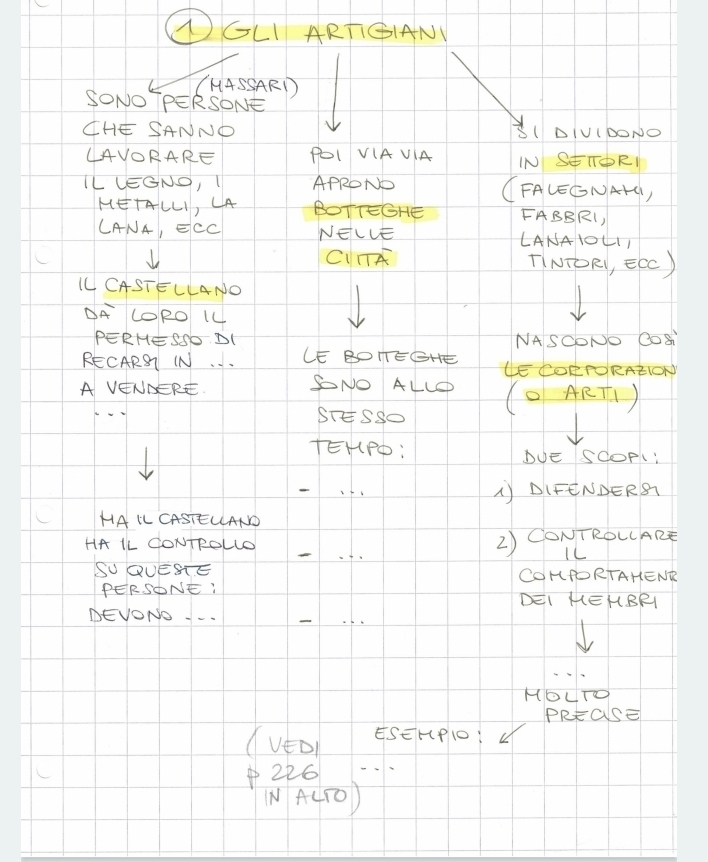 1 GLI ARTIGIANI
(MASSARI)
SONO PERSONE
CHE SANNO
LAVORARE
IL LEGNO, I
METALLI, LA
LANA, ECC
IL CASTELLANO
DÀ LORO IL
PERMESSO DI
RECARSI IN ...
A VENDERE
...
MA IL CASTELLANO
HA IL CONTROLLO
SU QUESTE
PERSONE:
DEVONO ...
POI VIA VIA
APRONO
BOTTEGHE
NELLE
CITTÀ
LE BOTTEGHE
SONO ALLO
STESSO
TEMPO:
- ...
- ...
- ...
SI DIVIDONO
IN SETTORI
(FALEGNAMI,
FABBRI,
LANAIOLI,
TINTORI, ECC)
NASCONO COSÌ
LE CORPORAZION
(O ARTI)
DUE SCOPI:
1) DIFENDERSI
2) CONTROLLARE
IL
COMPORTAMEN
DEI MEMBRI
...
MOLTO
PRECISE
ESEMPIO:
...
(VEDI
p 226
IN ALTO)